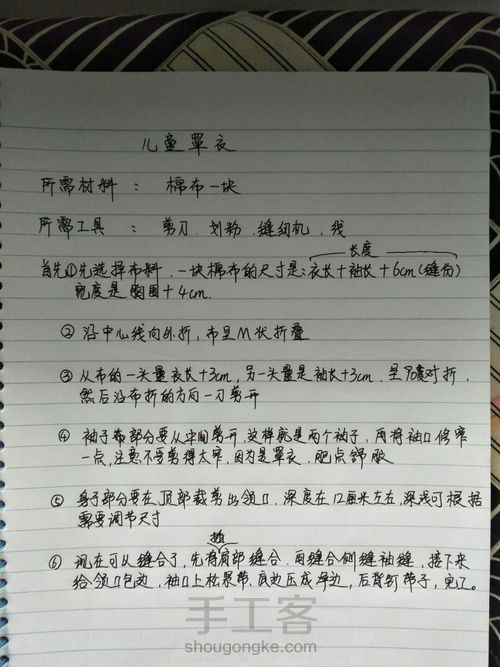 儿童罩衣
所需材料 : 棉布一块
所需工具 : 剪刀.划粉.缝纫机.线
长度
首先①先选择布料.一块棉布的尺寸是:衣长+袖长+6cm(缝份)
宽度是胸围+4cm.
② 沿中心线向外折,布呈M状折叠
③ 从布的一头量衣长+3cm,另一头量是袖长+3cm,呈90度对折,
然后沿布折的方向一刀剪开
④ 袖子布部分要从中间剪开.这样就是两个袖子,再将袖口修窄
一点,注意不要剪得太窄,因为是罩衣.肥点舒服
⑤ 身子部分要在顶部裁剪出领口,深度在12厘米左右,深浅可根据
需要调节尺寸
⑥ 现在可从缝合了,先将肩部缝合.再缝合侧缝袖缝,接下来
给领口包边,袖口上松紧带.底边压成净边,后背钉带子,完了。
手工客
shougongke.com